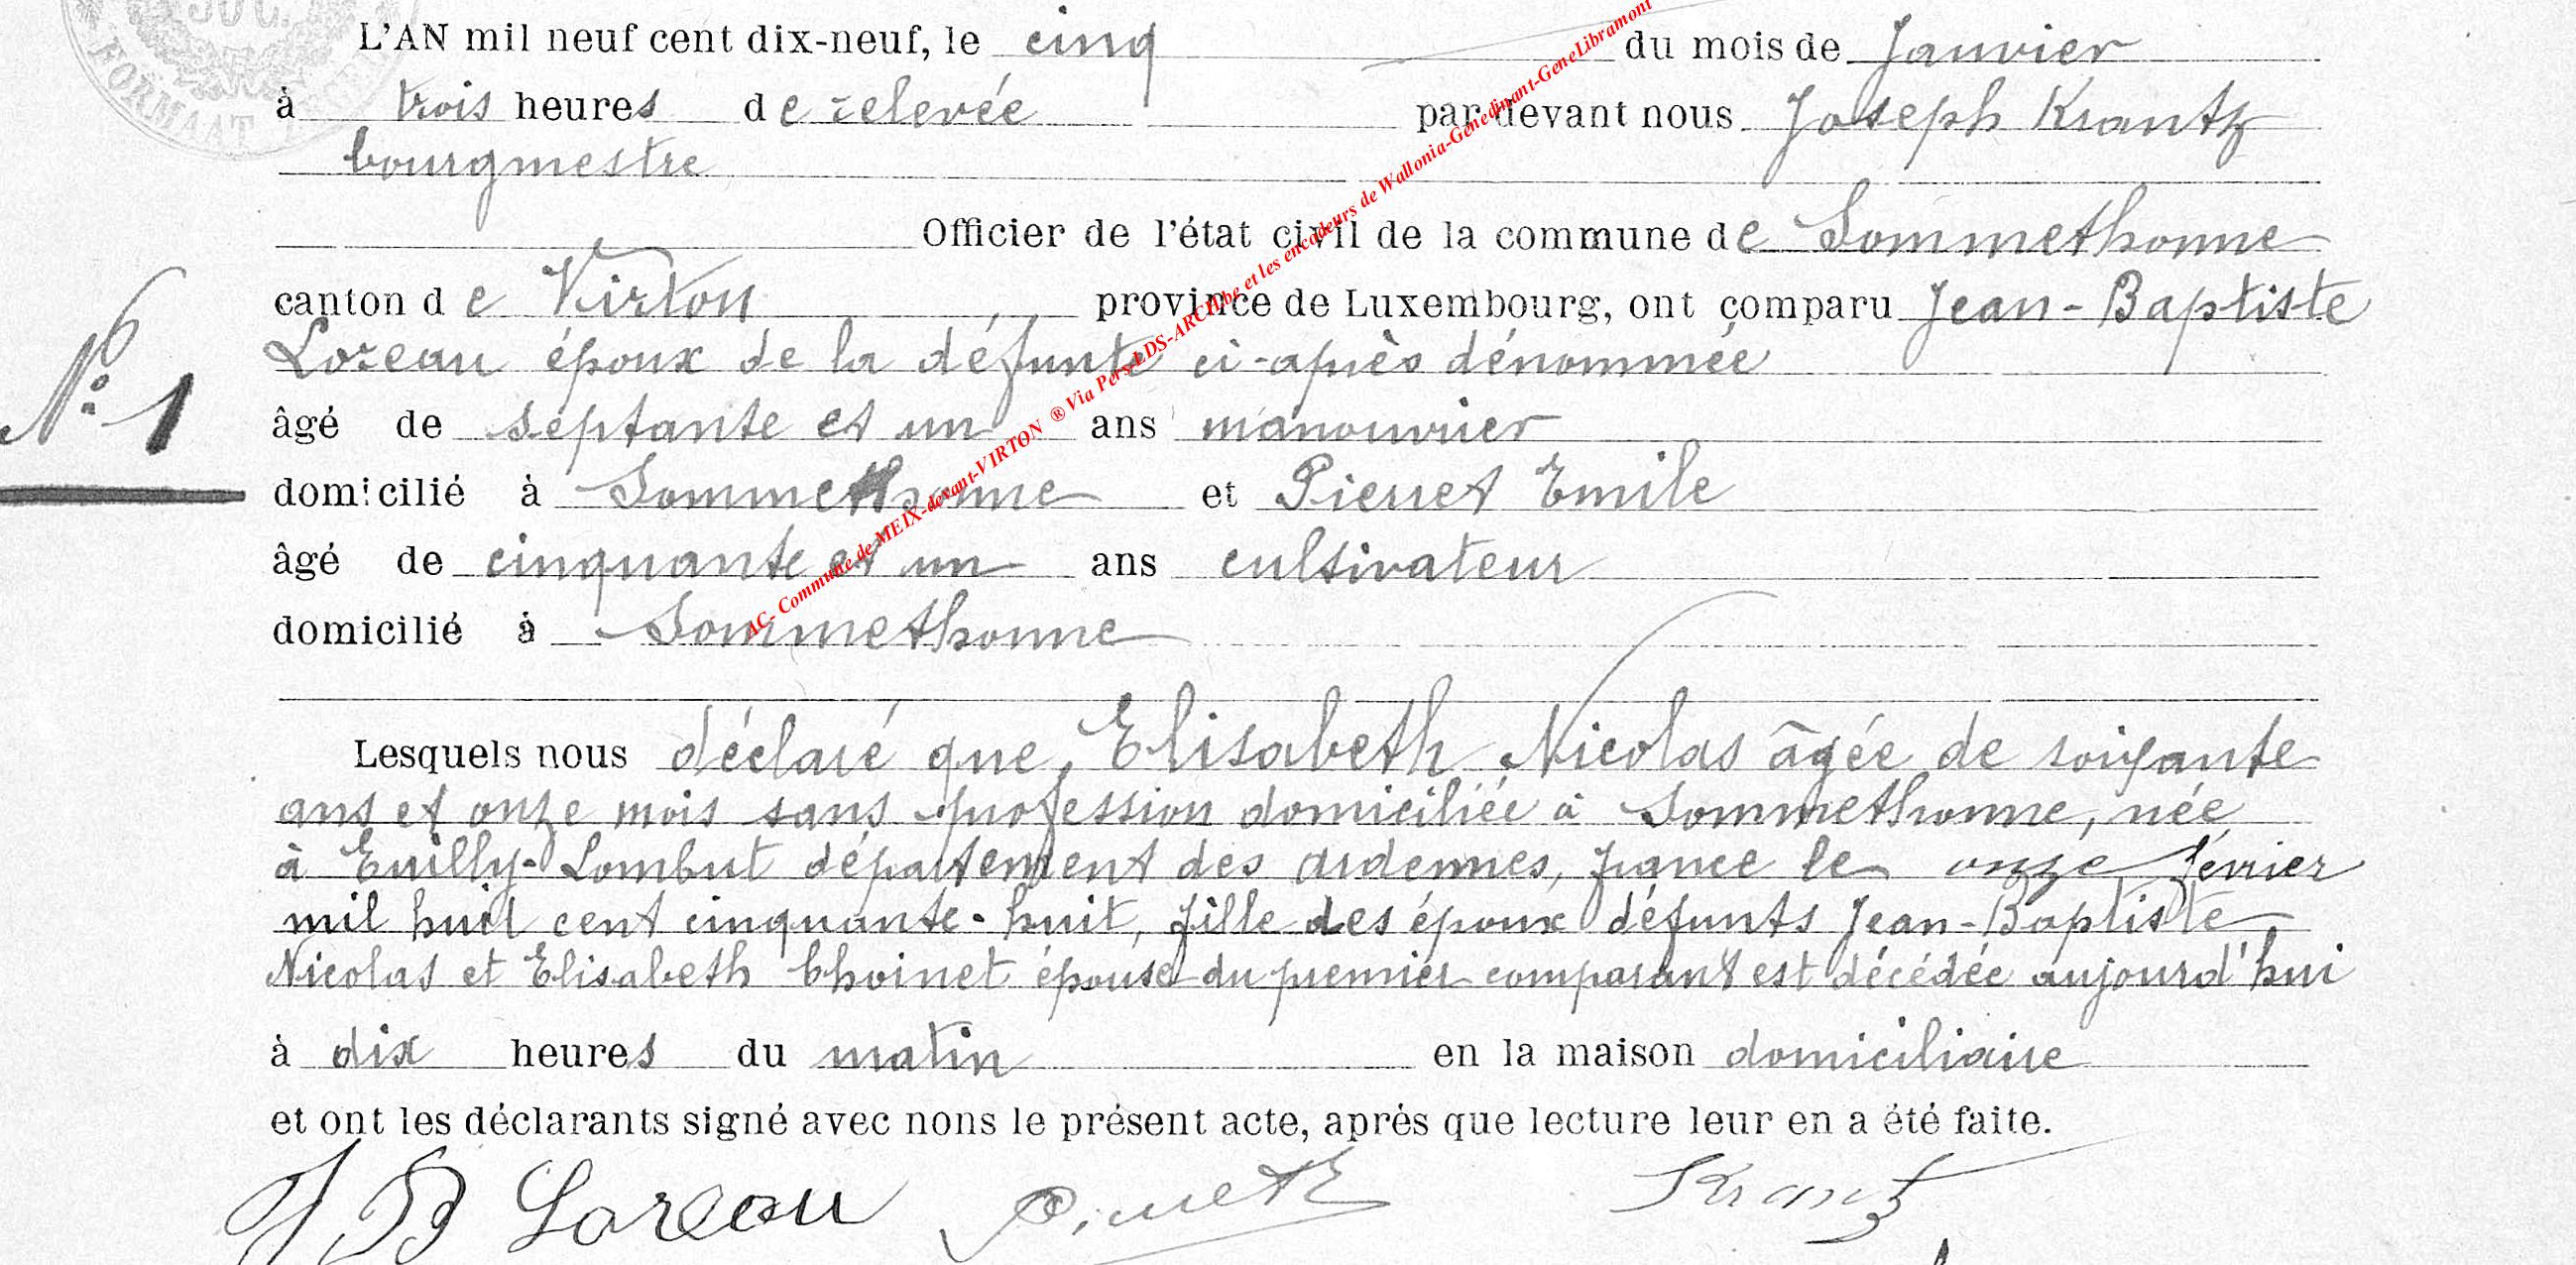 L'AN mil neuf cent dix-neuf, le cinq du mois de Janvier
à trois heures de relevée par devant nous Joseph Krantz
bourgmestre
Officier de l'état civil de la commune de Sommethonne
canton de Virton province de Luxembourg, ont comparu Jean-Baptiste
Lozeau époux de la défunte ci-après dénommée
N° 1
âgé de septante et un ans manouvrier
domicilié à Sommethonne et Pierret Emile
âgé de cinquante et un ans cultivateur
domicilié à Sommethonne
Lesquels nous déclaré que Elisabeth Nicolas âgée de soixante
ans et onze mois sans profession domiciliée à Sommethonne, née
à Euilly-Lombut département des ardennes, france le onze février
mil huit cent cinquante-huit, fille des époux défunts Jean-Baptiste
Nicolas et Elisabeth Choinet épouse du premier comparant est décédée aujourd'hui
à dix heures du matin en la maison domiciliaire
et ont les déclarants signé avec nons le présent acte, après que lecture leur en a été faite.
J B Lozeau Pierret E Krantz
AC- Commune de MEIX-devant-VIRTON ® Via Pers-LDS-ARCH.be et les encodeurs de Wallonia-Genedinant-GeneLibramont
FORMAAT